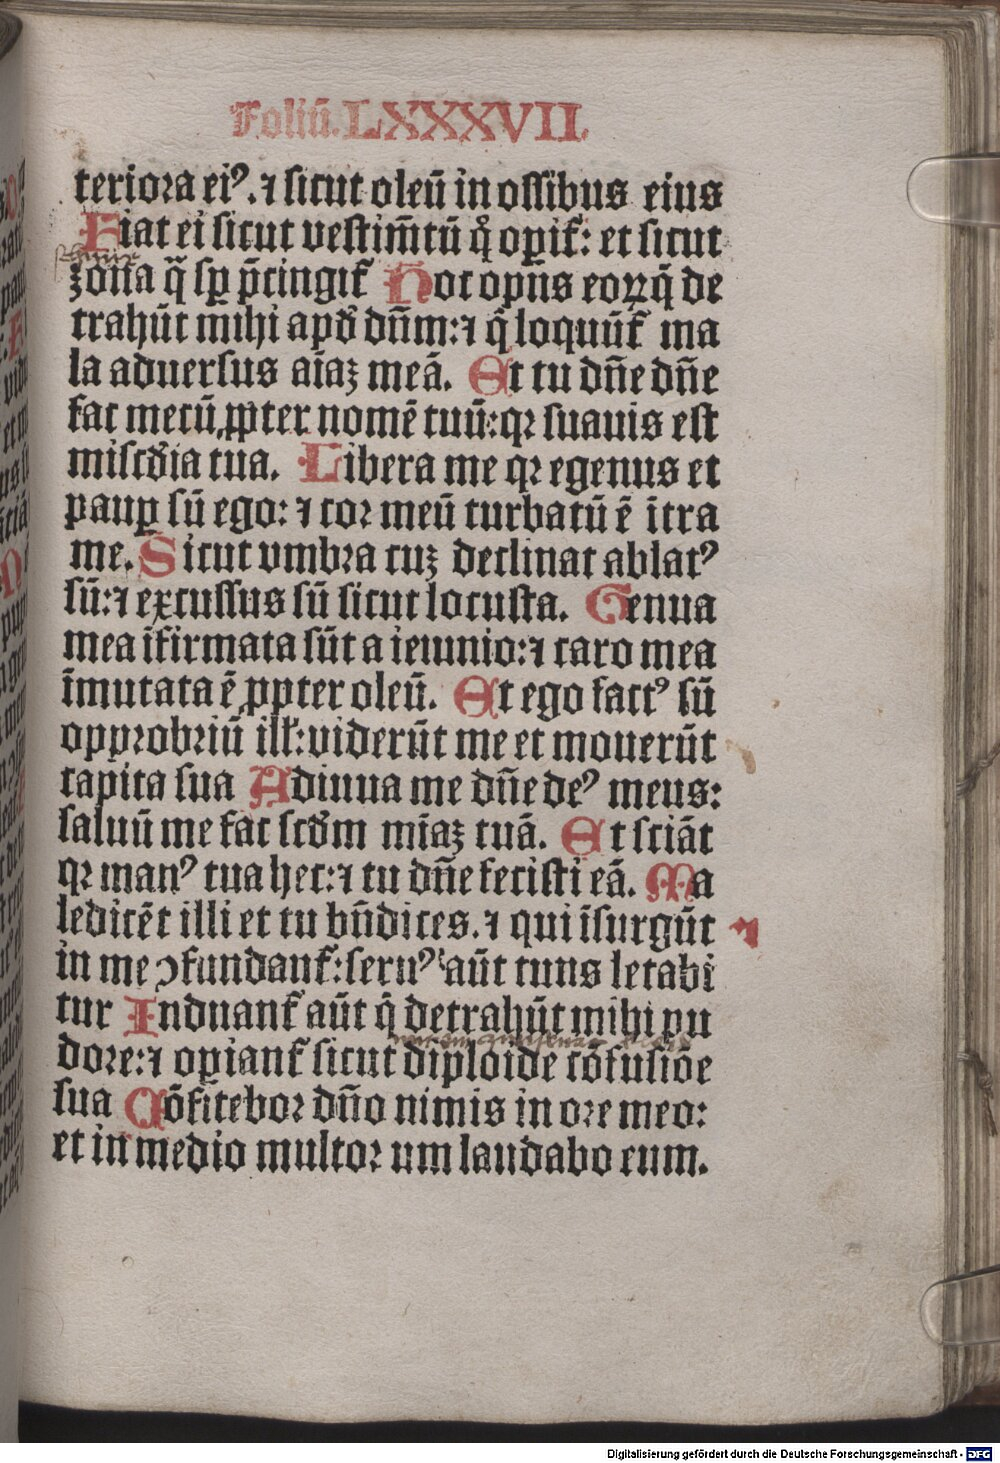 Foliū. LXXXVII.
teriora eiꝰ. ⁊ sicut oleū in ossibus eius
Fiat ei sicut vestim̄tū q̊ oꝑit᷑: et sicut
zona q̄ sꝑ p̄cingit᷑ Hoc opus eoꝝ q̄ de
trahūt mihi apd̄ dn̄m: ⁊ q̄ loquūt᷑ ma
la aduersus aīaꝫ meā. Et tu dn̄e dn̄e
fac mecū ꝓpter nomē tuū: qꝛ suauis est
misc̄dia tua. Libera me qꝛ egenus et
pauꝑ sū ego: ⁊ cor meū turbatū ē ītra
me. Sicut vmbra cuꝫ declinat ablatꝰ
sū: ⁊ excussus sū sicut locusta. Genua
mea īfirmata sūt a ieiunio: ⁊ caro mea
īmutata ē ꝓpter oleū. Et ego factꝰ sū
opprobriū ill᷑: viderūt me et mouerūt
capita sua Adiuua me dn̄e deꝰ meus:
saluū me fac scd̄m mīaꝫ tuā. Et sciāt
qꝛ manꝰ tua hec: ⁊ tu dn̄e fecisti eā. Ma
ledicēt illi et tu bn̄dices. ⁊ qui īsurgūt
in me ꝯfundant᷑: seruꝰ aūt tuus letabi
tur Induant᷑ aūt q̄ detrahūt mihi pu
dore: ⁊ oꝑiant᷑ sicut diploide cōfusiōe
sua Cōfitebor dn̄o nimis in ore meo:
et in medio multor um laudabo eum.
Digitalisierung gefördert durch die Deutsche Forschungsgemeinschaft - DFG